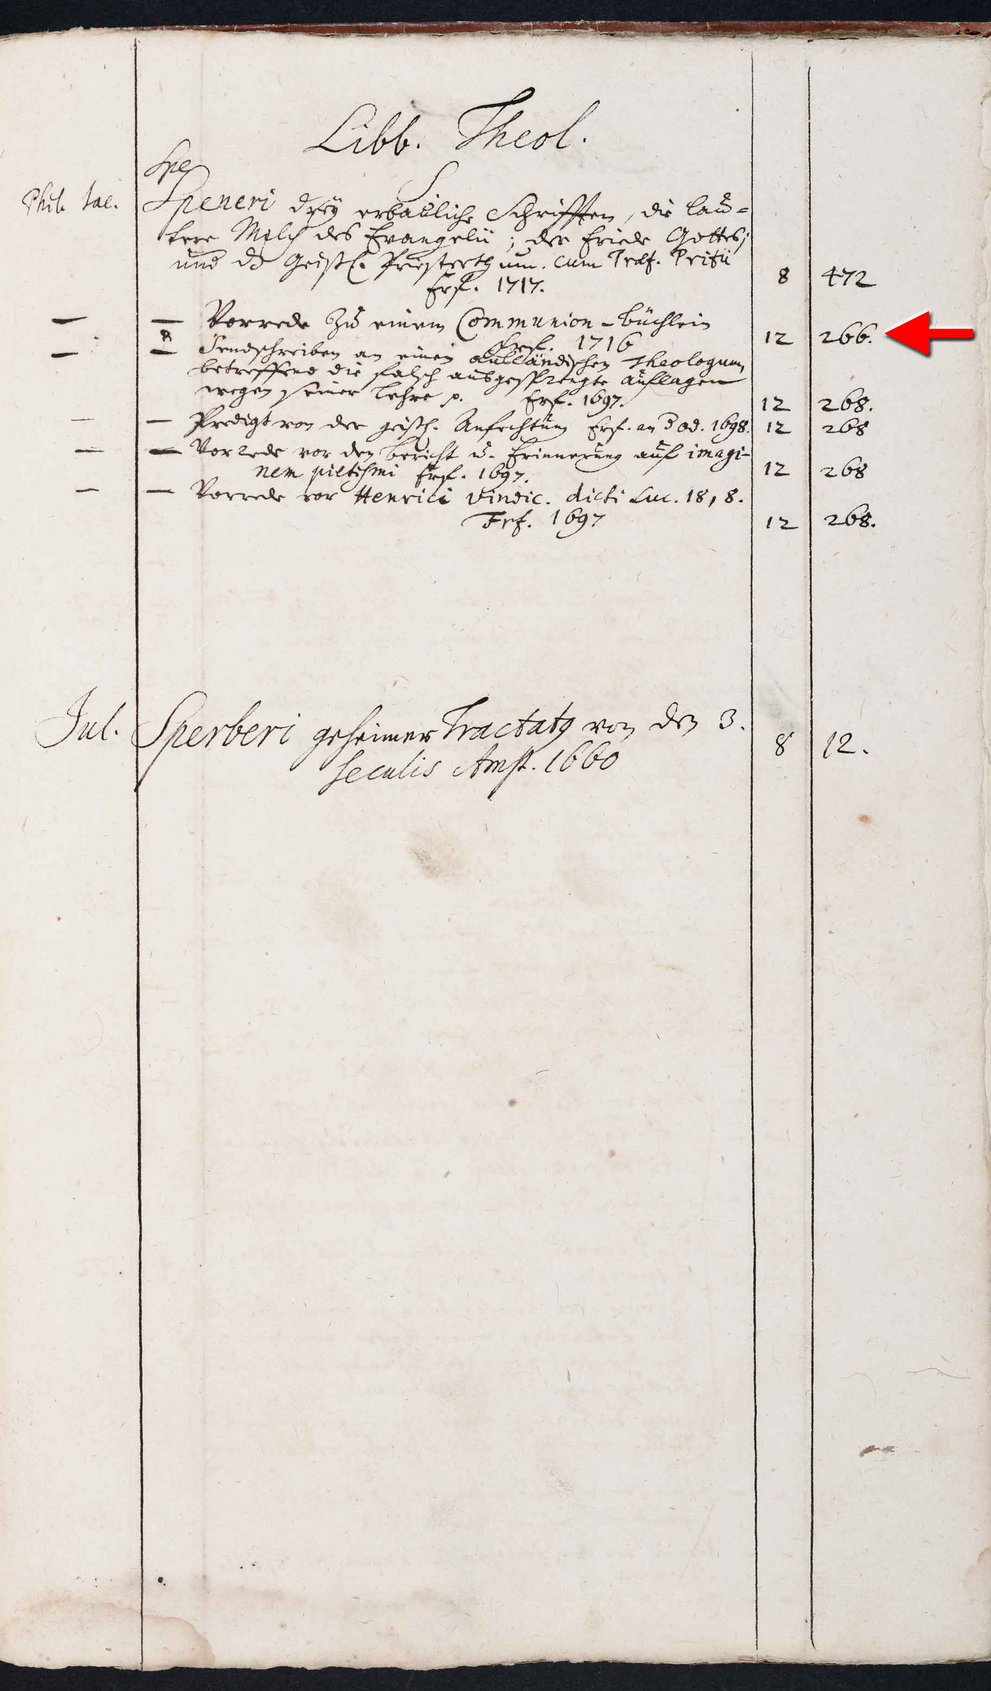 Libb. Theol.
Spe
S
Phil. Jac. Speneri drey erbauliche Schrifften, die lau=
tere Milch des Evangelii; der Friede Gottes;
und dz Geistl. Priesterthum. cum Præf. Pritii
Erf. 1717. 8 472
— — Vorrede zu einem Communion-büchlein
Fref. 1716 12 266.
— — Sendschreiben an einen außländischen Theologum,
betreffend die falsch ausgesprengte aufflagen
wegen seiner Lehre p. Erf. 1697. 12 268.
— — Predigt von der geistl. Anfechtung Erf. an d Od. 1698. 12 268
— — Vorrede vor den bericht u. Erinnerung auf imagi-
nem pietismi Erf. 1697. 12 268
— — Vorrede vor Henrici vindic. dicti Luc. 18, 8.
Frf. 1697 12 268.
Jul. Sperberi geheimer Tractatg von den 3.
seculis Amst. 1660 8 12.